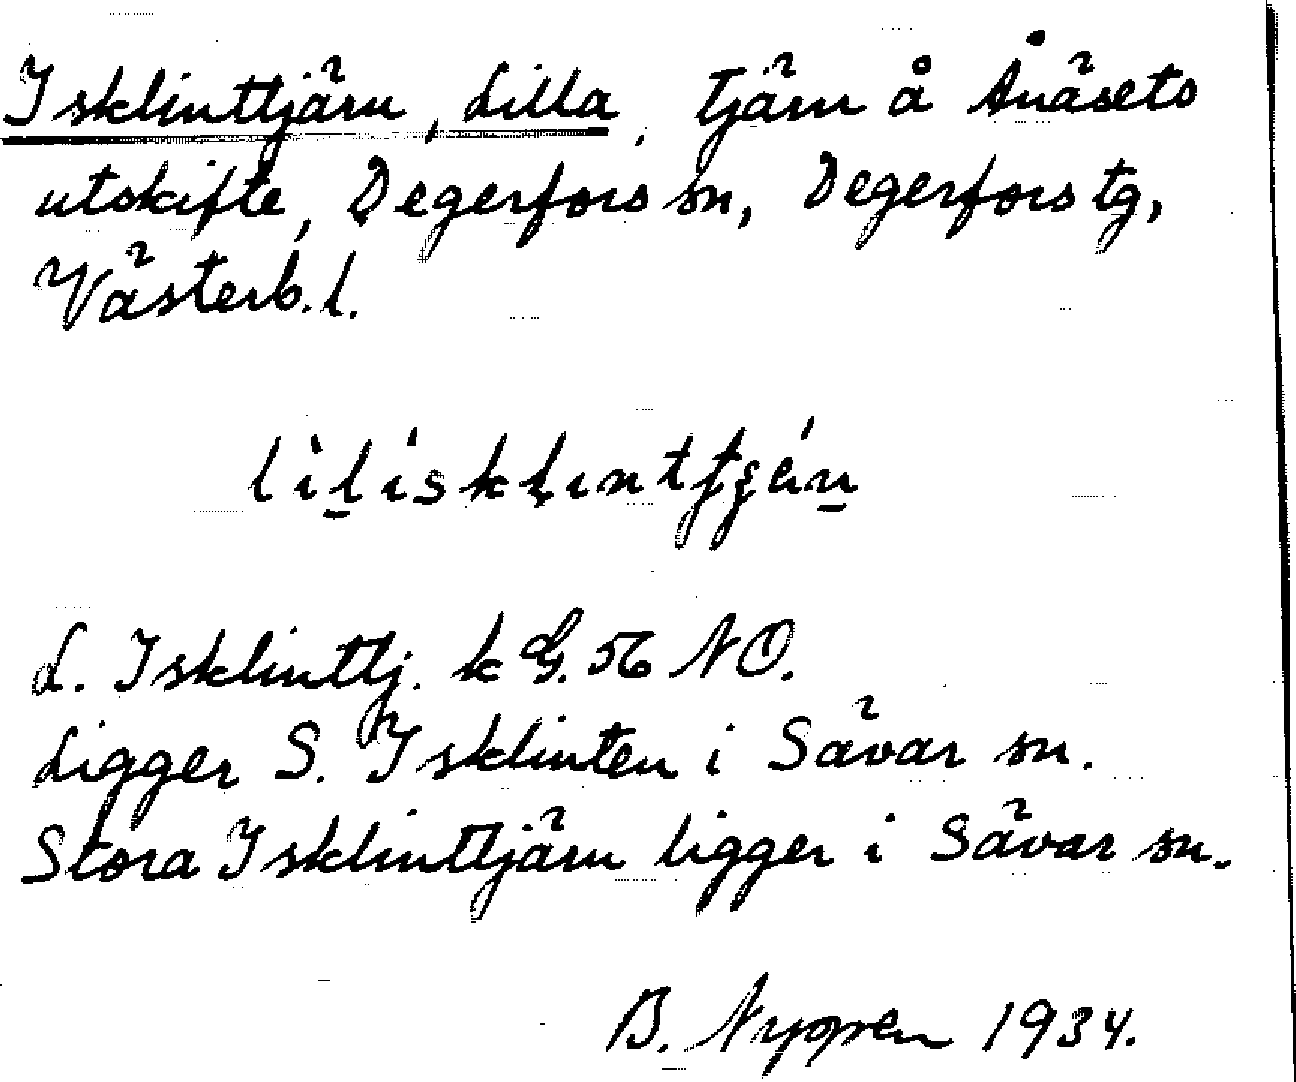 Isklinttjärn, Lilla, tjärn å Ånäsets
utskifte, Degerfors sn, Degerfors tg,
Västerb. l.
L. Isklinttj. k G. 56 NO.
Ligger S. Isklinten i Sävar sn.
Stora Isklinttjärn ligger i Sävar sn.
B. 1934.